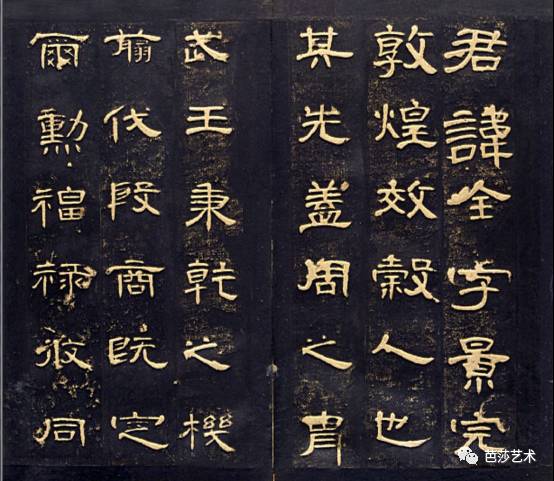 君諱全字景完
敦煌效穀人也
其先蓋周之胄
武王秉乾之機
翦伐殷商既定
爾勳福祿攸同
芭莎艺术